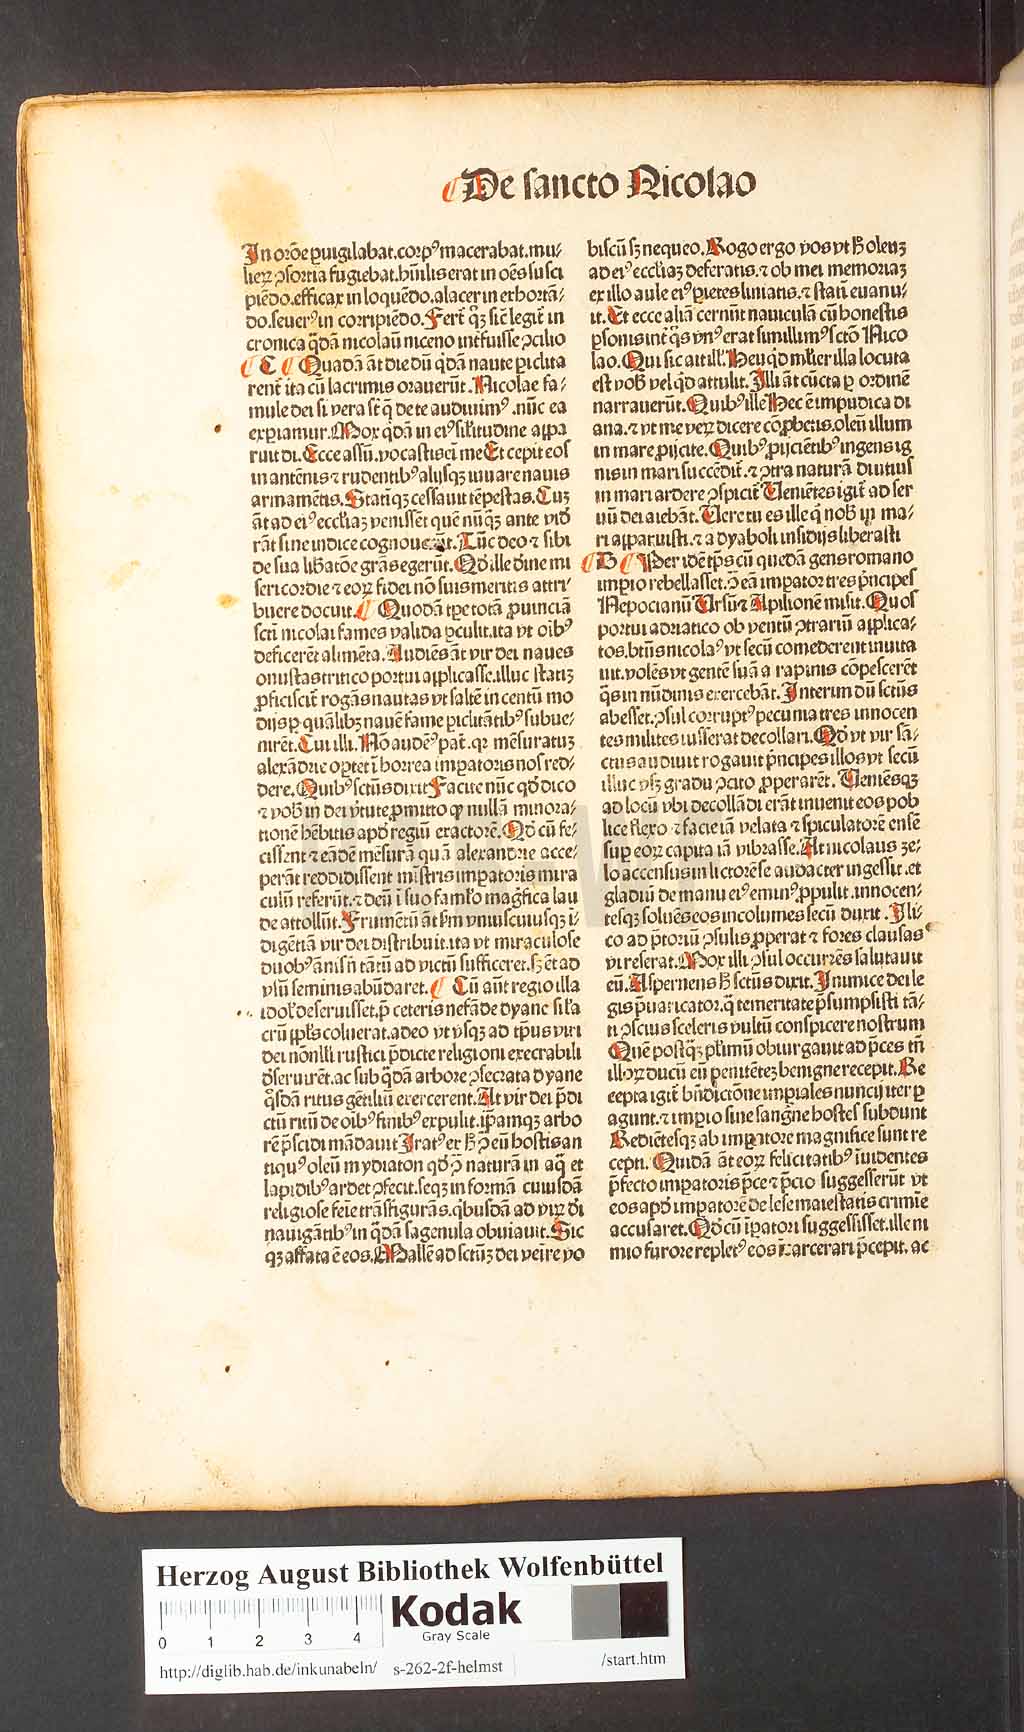 De sancto Nicolao
In orōe p̱uigilabat. corpꝰ macerabat. mu⸗
lieꝝ ↄsortia fugiebat. hūilis erat in oēs susci
piēdo. efficax in loquēdo. alacer in exhortā⸗
do. seuerꝰ in corripiēdo. Fert̄ qꝫ sic̄ legit̄ in
cronica q̄dā nicolaū niceno int̄fuisse ↄcilio
C Quadā āt die dū q̄dā naute p̱iclita
rent̄ ita cū lacrimis orauerūt. Nicolae fa⸗
mule dei si vera sūt q̄ de te audiuimꝰ. nūc ea
experiamur. Mox q̄dā in eiꝰ sil̄itudine appa
ruit di. Ecce assū. vocastis em̄ me Et cepit eos
in antēnis ⁊ rudentibꝰ alijsqꝫ iuuare nauis
armamētis. Statiqꝫ cessauit tēpestas. Cuꝫ
āt ad eiꝰ eccl̄iaꝫ venissēt quē nūqꝫ ante vide
rāt sine indice cognouerūt. Tūc deo ⁊ sibi
de sua lib̄atōe grās egerūt. Qd̄ ille diuine mi
sericordie ⁊ eoꝝ fidei nō suis meritis attri⸗
buere docuit. Quodā tp̄e totā ꝓuinciā
scti nicolai fames valida p̱culit. ita vt oībꝰ
deficerēt alimēta. Audiēs āt vir dei naues
onustas tritico portui applicasse. illuc statiꝫ
ꝓficiscit̄ rogās nautas vt saltē in centū mo
dijs p̱ quālibꝫ nauē fame p̱iclitātibꝰ subue⸗
nirēt. Cui illi. Nō audemꝰ pat̄. qꝛ mēsuratuꝫ
alexādrie oportet ī horrea imp̱atoris nos red⸗
dere. Quibꝰ sctūs dixit Facite nūc qd̄ dico
⁊ vob̄ in dei v̄tute ꝓmitto ꝙ nullā minora⸗
tionē hēbitis apd̄ regiū exactorē. Qd̄ cū fe⸗
cissent ⁊ eādē mēsurā quā alexandrie acce⸗
perāt reddidissent mīstris imp̱atoris mira
culū referūt. ⁊ deū ī suo famlo magnifica lau
de attollūt. Frumētū āt sm̄ vniuscuiusqꝫ i⸗
digētiā vir dei distribuit. ita vt miraculose
duobꝰ annis nō tātū ad victū sufficeret. sꝫ et ad
vsū seminis abūdaret. Cū aūt regio illa
idol̄ deseruisset. p̄ ceteris nefāde dyane sil̄a
crū ipl̄s coluerat. adeo vt vsqꝫ ad tp̄us viri
dei nōnlli rustici p̄dicte religioni execrabili
deseruirēt. ac sub q̄dā arbore ↄsecrata dyane
q̄sdā ritus gētiliū exercerent. At vir dei p̄di
ctū ritū de oībꝰ finibꝰ expulit. ip̄amqꝫ arbo
rē p̄scidi mādauit Iratꝰ ex h̄ ↄ̄ eū hostis an
tiquꝰ oleū mydiaton qd̄ ↄ̄ naturā in aq̄ et
lapidibꝰ ardet ↄfecit. seqꝫ in formā cuiusdā
religiose feīe trāsfigurās. q̄busdā ad viꝝ di
nauigātibꝰ in q̄dā sagenula obuiauit. Sic
qꝫ affata ē eos. Mallē ad sctūꝫ dei veire vo
biscū sꝫ nequeo. Rogo ergo vos vt h̄ oleuꝫ
ad eiꝰ eccl̄iaꝫ deferatis. ⁊ ob mei memoriaꝫ
ex illo aule eiꝰ p̱ietes liniatis. ⁊ statī euanu⸗
it. Et ecce aliā cernūt nauiculā cū honestis
p̱sonis int̄ q̄s vnꝰ erat simillimꝰ sctō Nico
lao. Qui sic ait ill̄. Heu qd̄ ml̄ier illa locuta
est vob̄ vel qd̄ attulit. Illi āt cūcta p̱ ordinē
narrauerūt. Quibꝰ ille Hec ē impudica di
ana. ⁊ vt me veꝝ dicere cōꝓbetis. oleū illum
in mare ꝓijcite. Quibꝰ ꝓijciētibꝰ ingens ig
nis in mari succēdit̄. ⁊ ↄtra naturā diutius
in mari ardere ↄspiciūt Veniētes igit̄ ad ser
uū dei aiebāt. Vere tu es ille q̄ nob̄ in ma⸗
ri apparuisti. ⁊ a dyaboli insidijs liberasti
D Per idē tp̄s cū quedā gens romano
imp̱io rebellasset. ↄ̄ eā imp̱ator tres p̄ncipes
Nepocianū Ursū ⁊ Apilionē misit. Quos
portui adriatico ob ventū ↄtrariū applica⸗
tos. btūs nicolaꝰ vt secū comederent inuita
uit. volēs vt gentē suā a rapinis cōpescerēt
q̄s in nūdinis exercebāt. Interim dū sctūs
abesset. ↄsul corruptꝰ pecunia tres innocen
tes milites iusserat decollari. Qd̄ vt vir sā⸗
ctus audiuit rogauit p̄ncipes illos vt secū
illuc vsqꝫ gradu ↄcito ꝓperarēt. Veniēsqꝫ
ad locū vbi decollādi erāt inuenit eos pob
lice flexo ⁊ facie iā velata ⁊ spiculatorē ensē
sup̱ eoꝝ capita iā vibrasse. At nicolaus ze⸗
lo accensus in lictorē se audacter ingessit. et
gladiū de manu eiꝰ eminꝰ ꝓpulit. innocen⸗
tesqꝫ soluēs eos incolumes secū duxit. Ili⸗
co ad p̄toriū ↄsulis ꝓperat ⁊ fores clausas
vi reserat. Mox illi ↄsul occurrēs salutauit
eū. Aspernens h̄ sctūs dixit. Inimice dei le
gis p̄uaricator. q̄ temeritate p̄sumpsisti tā⸗
ti ↄscius sceleris vultū conspicere nostrum
Quē postqꝫ pl̄imū obiurgauit ad p̄ces tn̄
illoꝝ ducū eū penitētē benigne recepit. Re
cepta igit̄ bn̄dictōne imp̱iales nuncij iter p̱
agunt. ⁊ imp̱io sine sangn̄e hostes subdunt
Rediētesqꝫ ab imp̱atore magnifice sunt re
cepti. Quidā āt eoꝝ felicitatibꝰ īuidentes
p̄fecto imp̱atoris p̄ce ⁊ p̄cio suggesserūt vt
eos apd̄ imp̱atorē de lese maiestatis crimīe
accusaret. Qd̄ cū īp̱atori suggessisset. ille ni
mio furore repletꝰ eos īcarcerari p̄cepit. ac
Herzog August Bibliothek Wolfenbüttel
0 1 2 3 4
Kodak
Gray Scale
http://diglib.hab.de/inkunabeln/ s-262-2f-helmst /start.htm